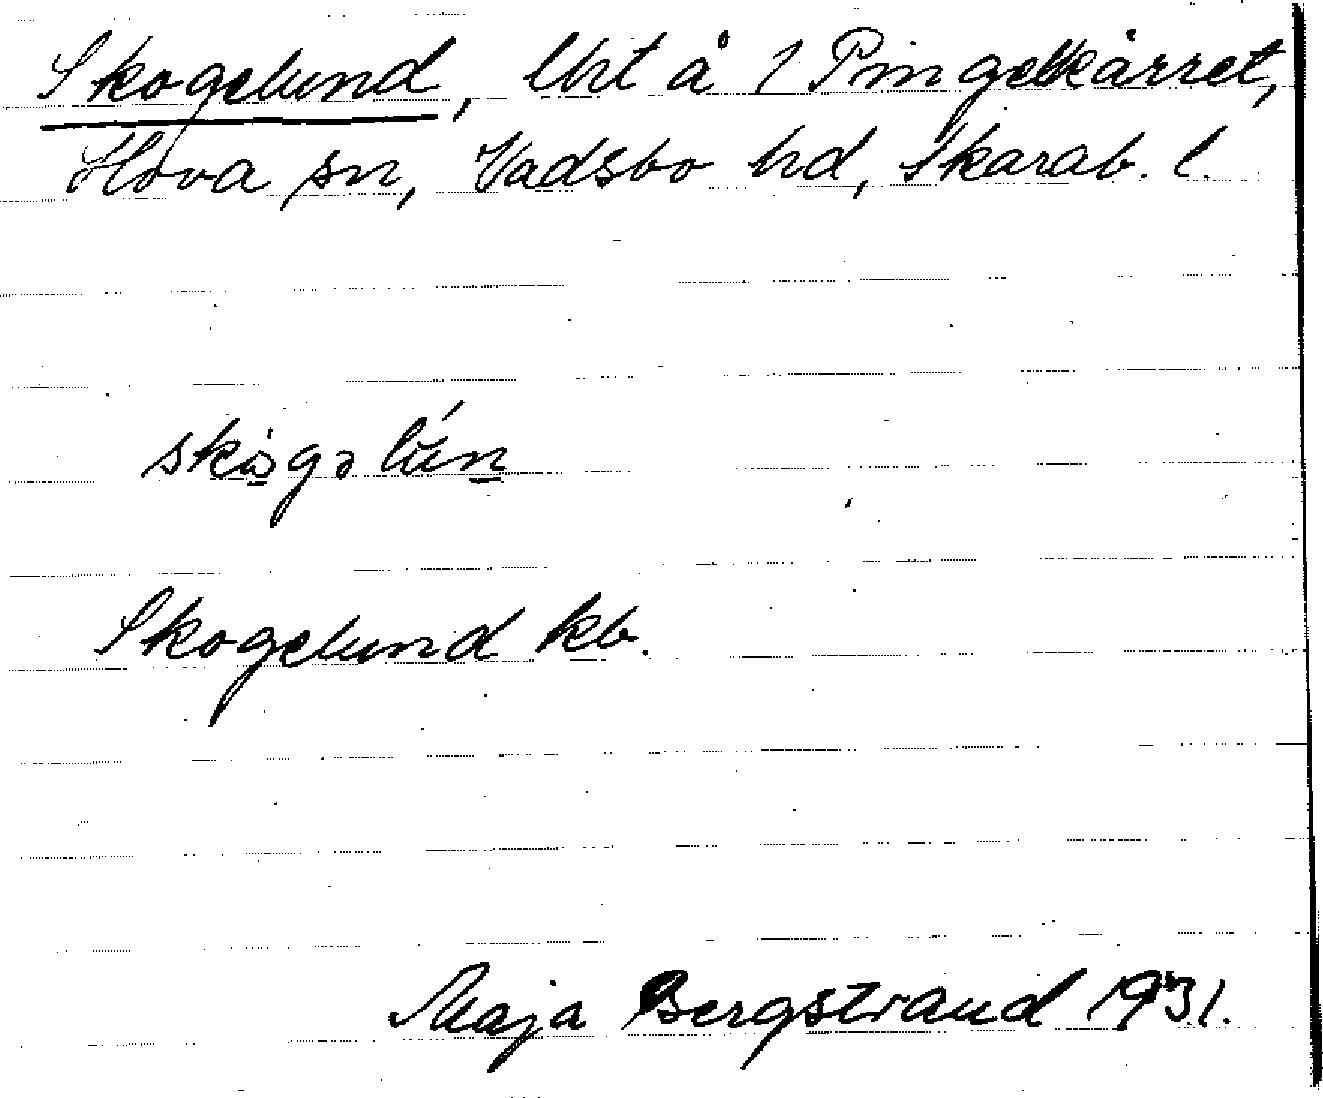 Skogelund, lht å 1 Pingelkärret,
Hova sn, Vadsbo hd, Skarab. l.
skògəlún
Skogelund kb.
Maja Bergstrand 1931.